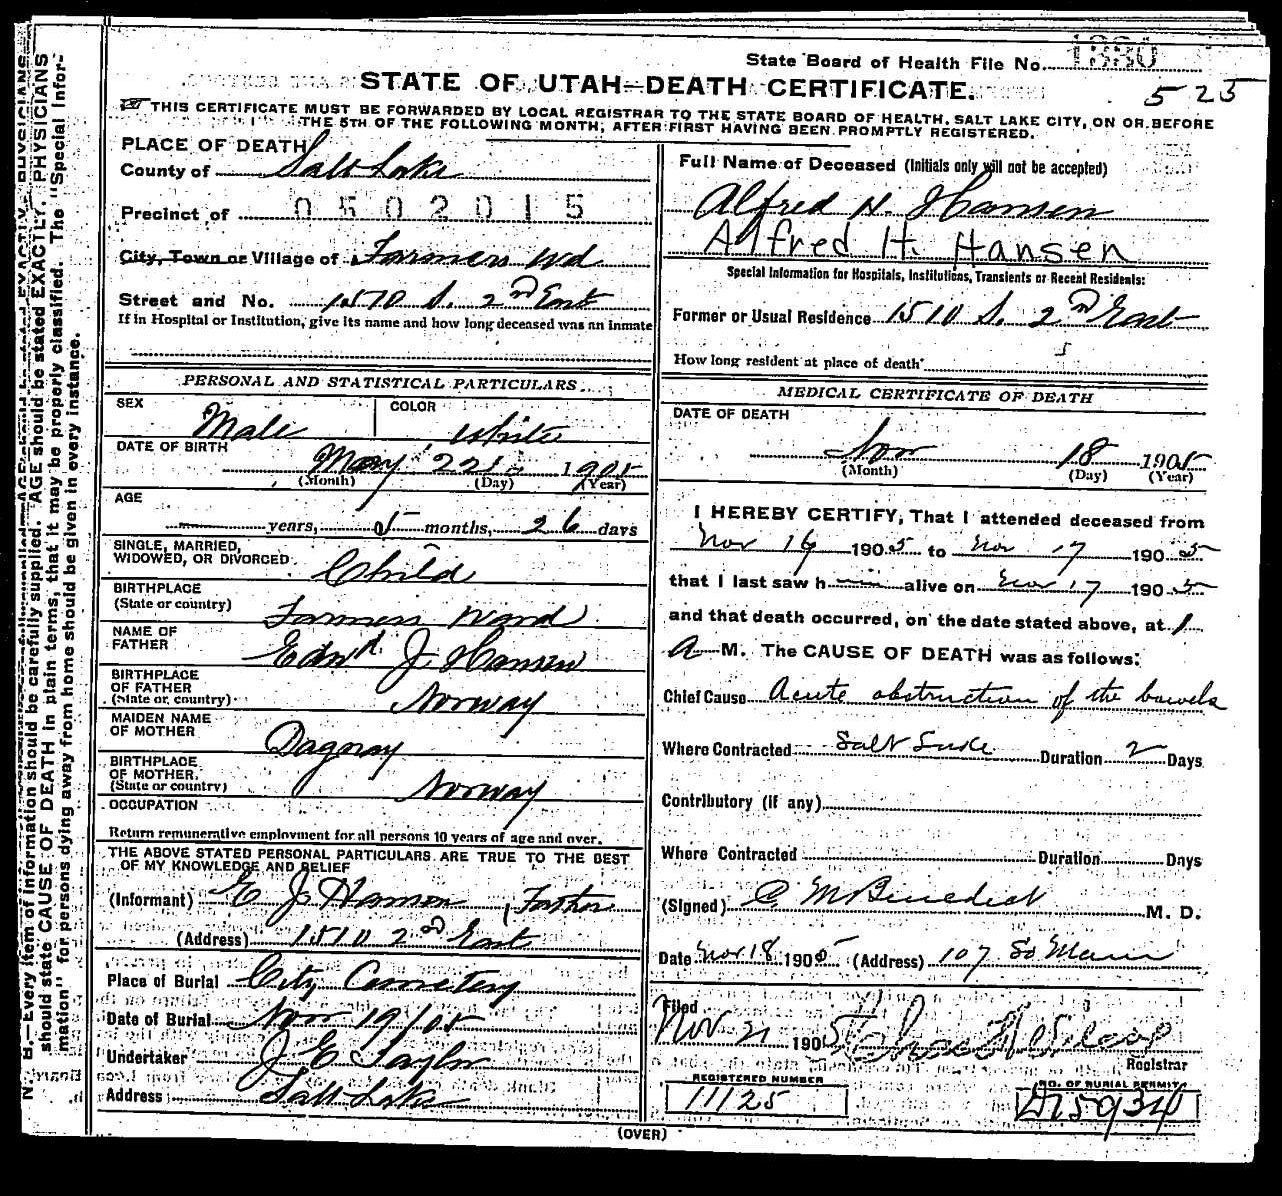 State Board of Health File No. 1330
STATE OF UTAH—DEATH CERTIFICATE.
525
THIS CERTIFICATE MUST BE FORWARDED BY LOCAL REGISTRAR TO THE STATE BOARD OF HEALTH, SALT LAKE CITY, ON OR BEFORE
THE 5TH OF THE FOLLOWING MONTH, AFTER FIRST HAVING BEEN PROMPTLY REGISTERED.
N. B.—Every item of information should be carefully supplied. AGE should be stated EXACTLY. PHYSICIANS
should state CAUSE OF DEATH in plain terms, that it may be properly classified. The "Special Infor-
mation" for persons dying away from home should be given in every instance.
PLACE OF DEATH
County of Salt Lake
Precinct of 0502015
City, Town or Village of Farmers Wd
Street and No. 1570 S. 2nd East
If in Hospital or Institution, give its name and how long deceased was an inmate
Full Name of Deceased (Initials only will not be accepted)
Alfred H. Hansen
Alfred H. Hansen
Special Information for Hospitals, Institutions, Transients or Recent Residents:
Former or Usual Residence 1510 S. 2nd East
How long resident at place of death
PERSONAL AND STATISTICAL PARTICULARS
SEX
Male
COLOR
White
DATE OF BIRTH
May 22 1905
(Month) (Day) (Year)
AGE
— years, 5 months, 26 days
SINGLE, MARRIED,
WIDOWED, OR DIVORCED Child
BIRTHPLACE
(State or country) Farmers Ward
NAME OF
FATHER Edwd. J. Hansen
BIRTHPLACE
OF FATHER
(State or country) Norway
MAIDEN NAME
OF MOTHER Dagmay
BIRTHPLACE
OF MOTHER
(State or country) Norway
OCCUPATION
Return remunerative employment for all persons 10 years of age and over.
THE ABOVE STATED PERSONAL PARTICULARS ARE TRUE TO THE BEST
OF MY KNOWLEDGE AND RELIEF
(Informant) E J Hansen, Father
(Address) 1510 2nd East
Place of Burial City Cemetery
Date of Burial Nov 19/05
Undertaker J E Taylor
Address Salt Lake
MEDICAL CERTIFICATE OF DEATH
DATE OF DEATH
Nov 18 1905
(Month) (Day) (Year)
I HEREBY CERTIFY, That I attended deceased from
Nov 16 1905 to Nov 17 1905
that I last saw h— alive on Nov 17 1905
and that death occurred, on the date stated above, at 1
A M. The CAUSE OF DEATH was as follows:
Chief Cause Acute obstruction of the bowels
Where Contracted Salt Lake Duration 2 Days
Contributory (if any)
Where Contracted Duration Days
(Signed) C M Benedict M. D.
Date Nov 18 1905 (Address) 107 So Main
Filed
Nov 21 1905
Registrar
REGISTERED NUMBER
11125
NO. OF BURIAL PERMIT
D15934
(OVER)